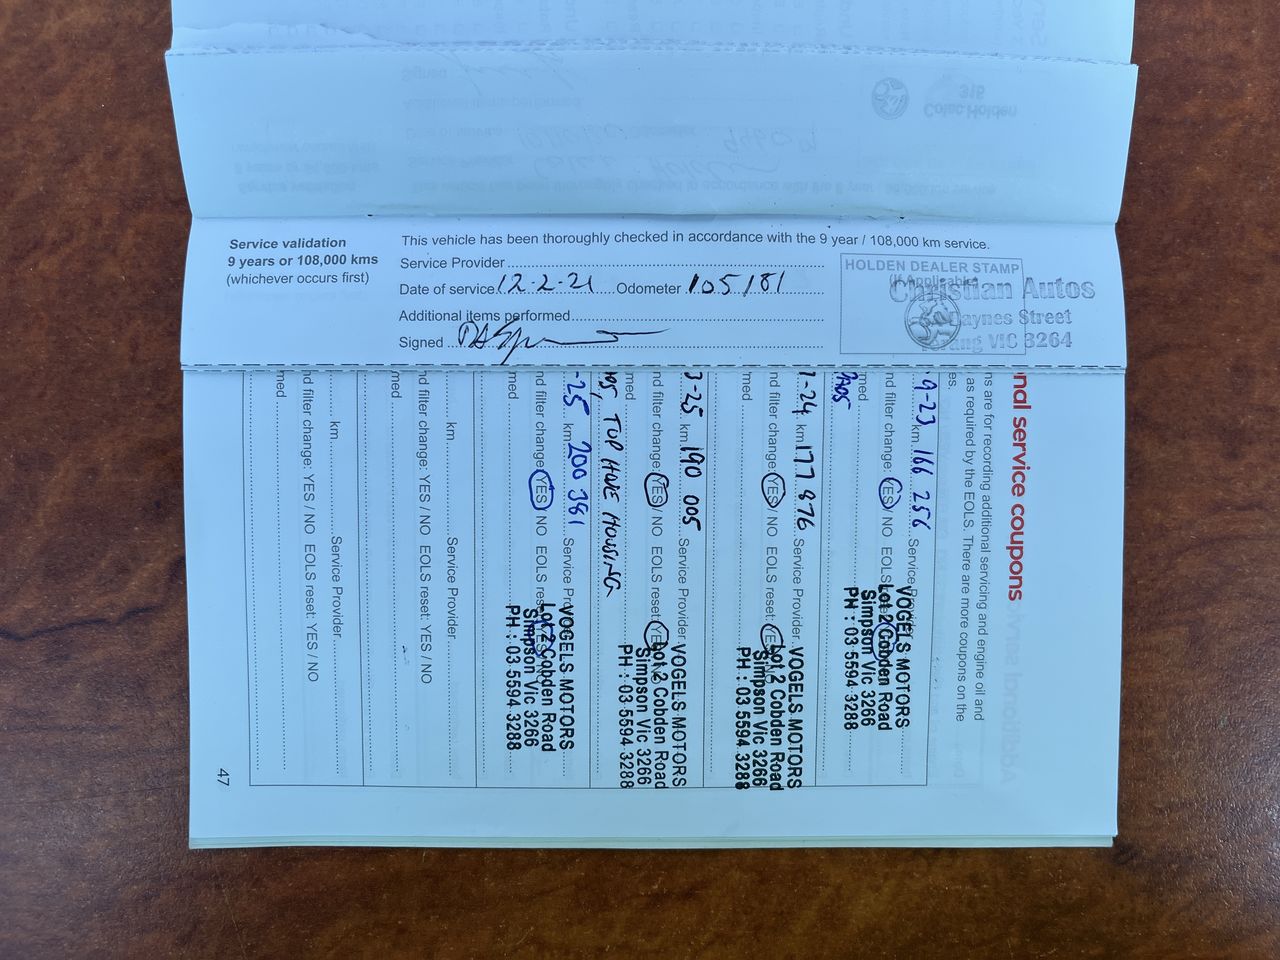 Service validation
9 years or 108,000 kms
(whichever occurs first)
This vehicle has been thoroughly checked in accordance with the 9 year / 108,000 km service.
Service Provider
Date of service 12-2-21 Odometer 105181
Additional items performed
Signed
HOLDEN DEALER STAMP
(If Applicable)
Christian Autos
Daynes Street
Terang VIC 3264
nal service coupons
ns are for recording additional servicing and engine oil and
as required by the EOLS. There are more coupons on the
es.
9-23 km 166 256 Service Provider
nd filter change: YES / NO EOLS
med
VOGELS MOTORS
Lot 2 Cobden Road
Simpson Vic 3266
PH : 03 5594 3288
1-24 km 177 876 Service Provider
nd filter change: YES / NO EOLS reset: YE
med
VOGELS MOTORS
Lot 2 Cobden Road
Simpson Vic 3266
PH : 03 5594 3288
3-25 km 190 005 Service Provider
nd filter change: YES / NO EOLS reset: YE
med
TOP HOSE HOUSING
VOGELS MOTORS
Lot 2 Cobden Road
Simpson Vic 3266
PH : 03 5594 3288
-25 km 200 381 Service Pro
nd filter change: YES / NO EOLS rese
med
VOGELS MOTORS
Lot 2 Cobden Road
Simpson Vic 3266
PH : 03 5594 3288
km Service Provider
nd filter change: YES / NO EOLS reset: YES / NO
med
km Service Provider
nd filter change: YES / NO EOLS reset: YES / NO
med
47